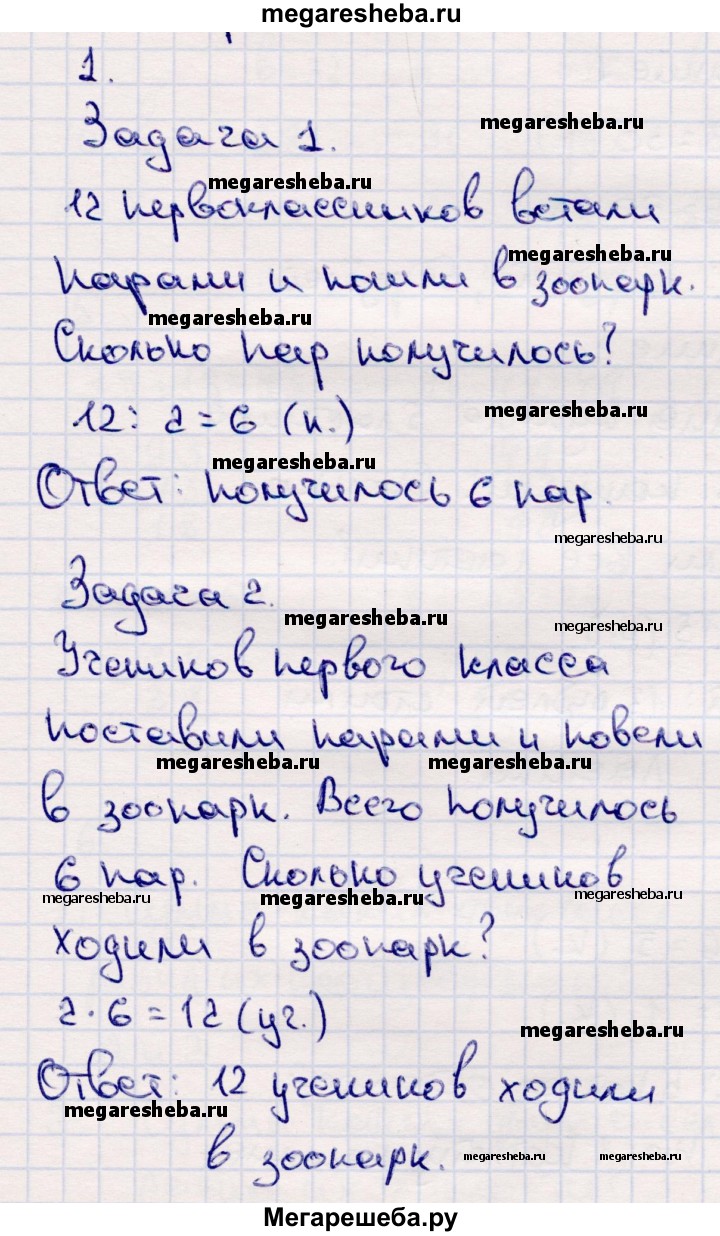 megaresheba.ru
1.
Задача 1.
megaresheba.ru
megaresheba.ru
12 первоклассников встали
megaresheba.ru
парами и пошли в зоопарк.
megaresheba.ru
Сколько пар получилось?
12 : 2 = 6 (п.)
megaresheba.ru
megaresheba.ru
Ответ: получилось 6 пар.
megaresheba.ru
Задача 2.
megaresheba.ru
megaresheba.ru
Учеников первого класса
поставили парами и повели
megaresheba.ru
megaresheba.ru
в зоопарк. Всего получилось
6 пар. Сколько учеников
megaresheba.ru
megaresheba.ru
megaresheba.ru
ходили в зоопарк?
2 · 6 = 12 (уч.)
megaresheba.ru
Ответ: 12 учеников ходили
megaresheba.ru
в зоопарк.
megaresheba.ru
megaresheba.ru
Мегарешеба.ру